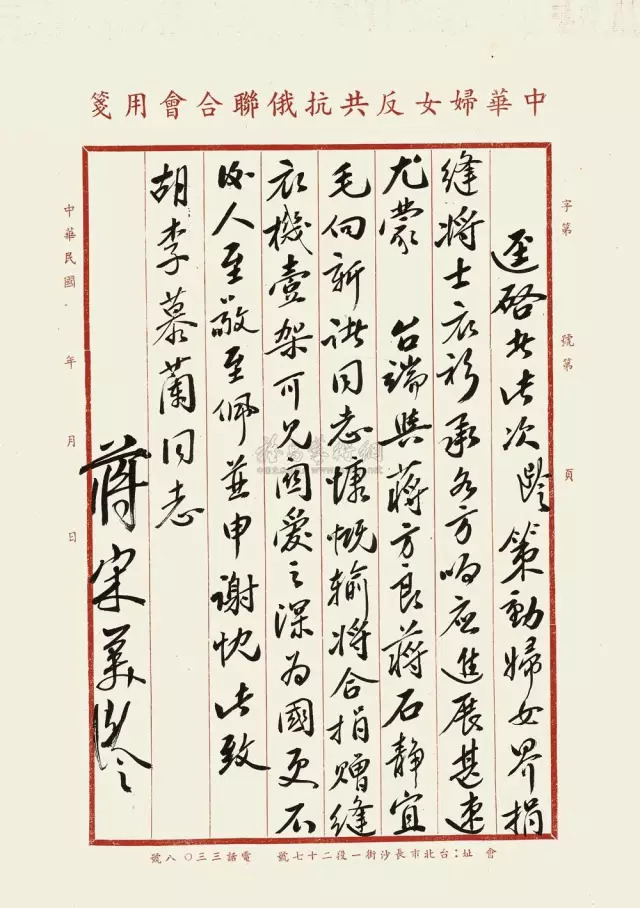 中華婦女反共抗俄聯合會用箋
字第　號第　頁
逕啓者此次齡策動婦女界捐
縫將士衣衫承各方响应進展甚速
尤蒙　台端與蔣方良蔣石靜宜
毛向新諸同志慷慨输將合捐赠縫
衣機壹架可見関愛之深為國更不
後人至敬至佩並申謝忱此致
胡李慕蘭同志
蔣宋美齡
中華民國　年　月　日
會址：台北市長沙街一段二十七號　電話三三〇八號